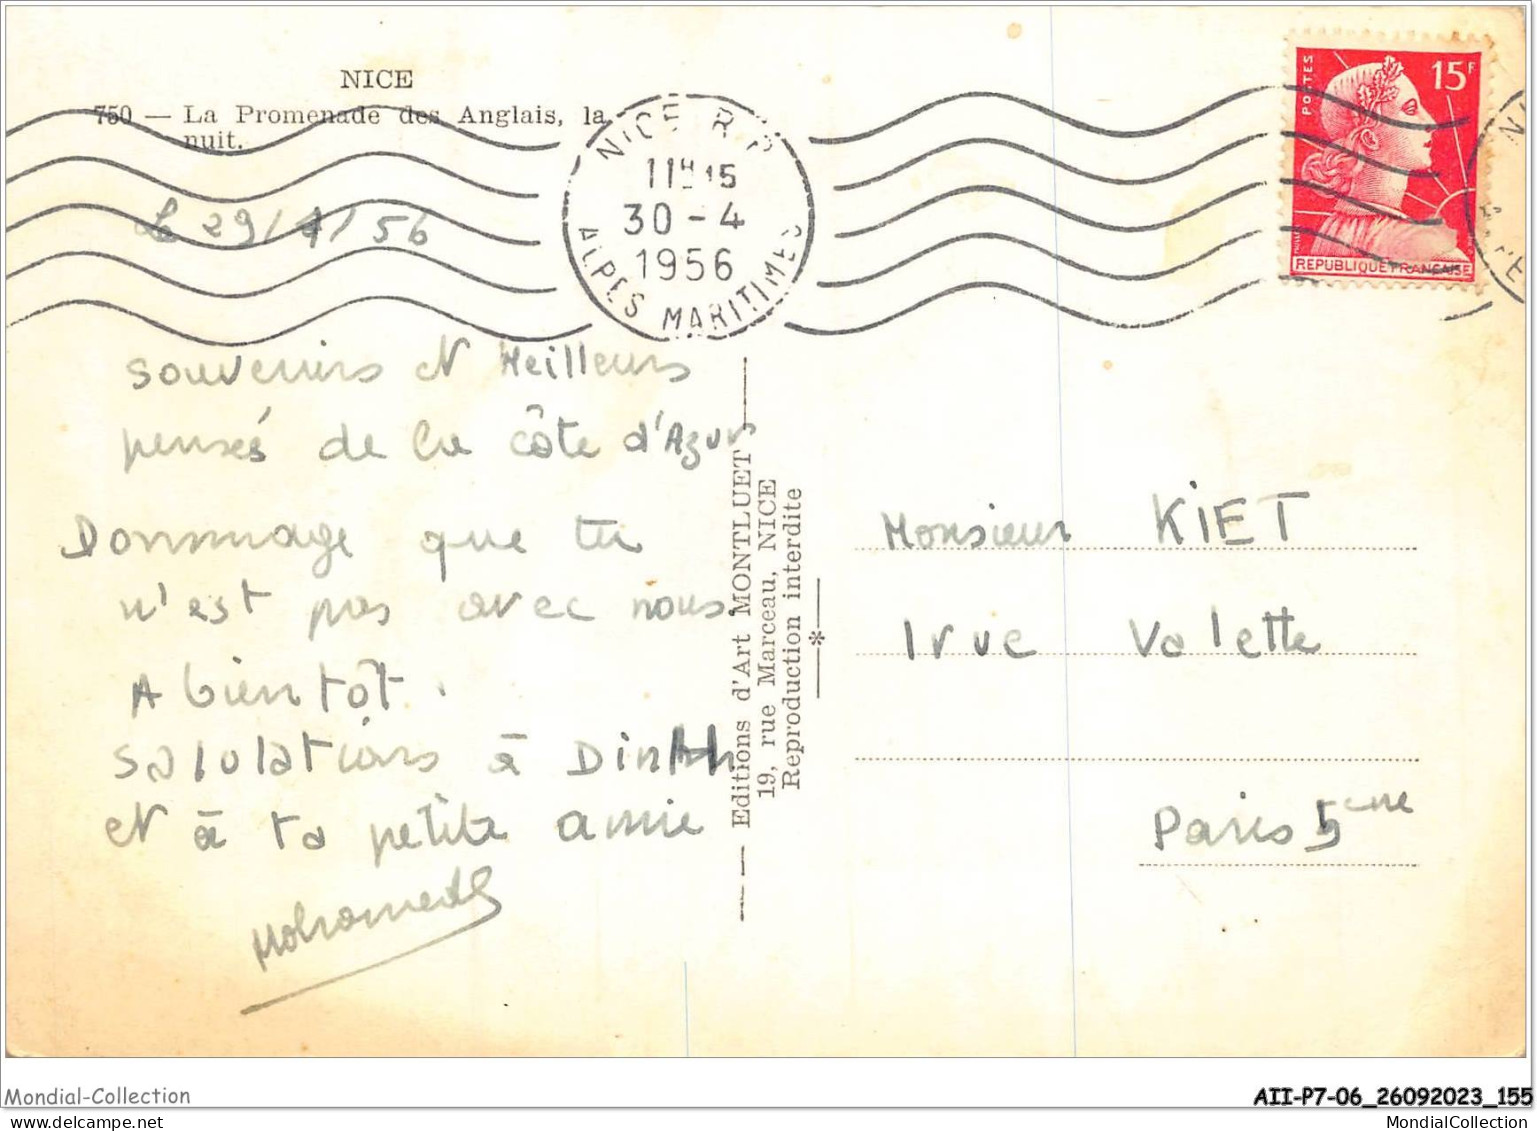 NICE
750 — La Promenade des Anglais, la
nuit.
Le 29/4/56
NICE R.P.
11H15
30 - 4
1956
ALPES MARITIMES
POSTES
15F
REPUBLIQUE FRANÇAISE
souvenirs et Meilleurs
pensés de la côte d'Azur
Dommage que tu
n'est pas avec nous.
A bientôt.
salutations à Dinh
et à ta petite amie
Mohamed
Editions d'Art MONTLUET
19, rue Marceau, NICE
Reproduction interdite
Monsieur KIET
1 rue Valette
Paris 5eme
Mondial-Collection
AII-P7-06_26092023_155
MondialCollection
MondialCollection